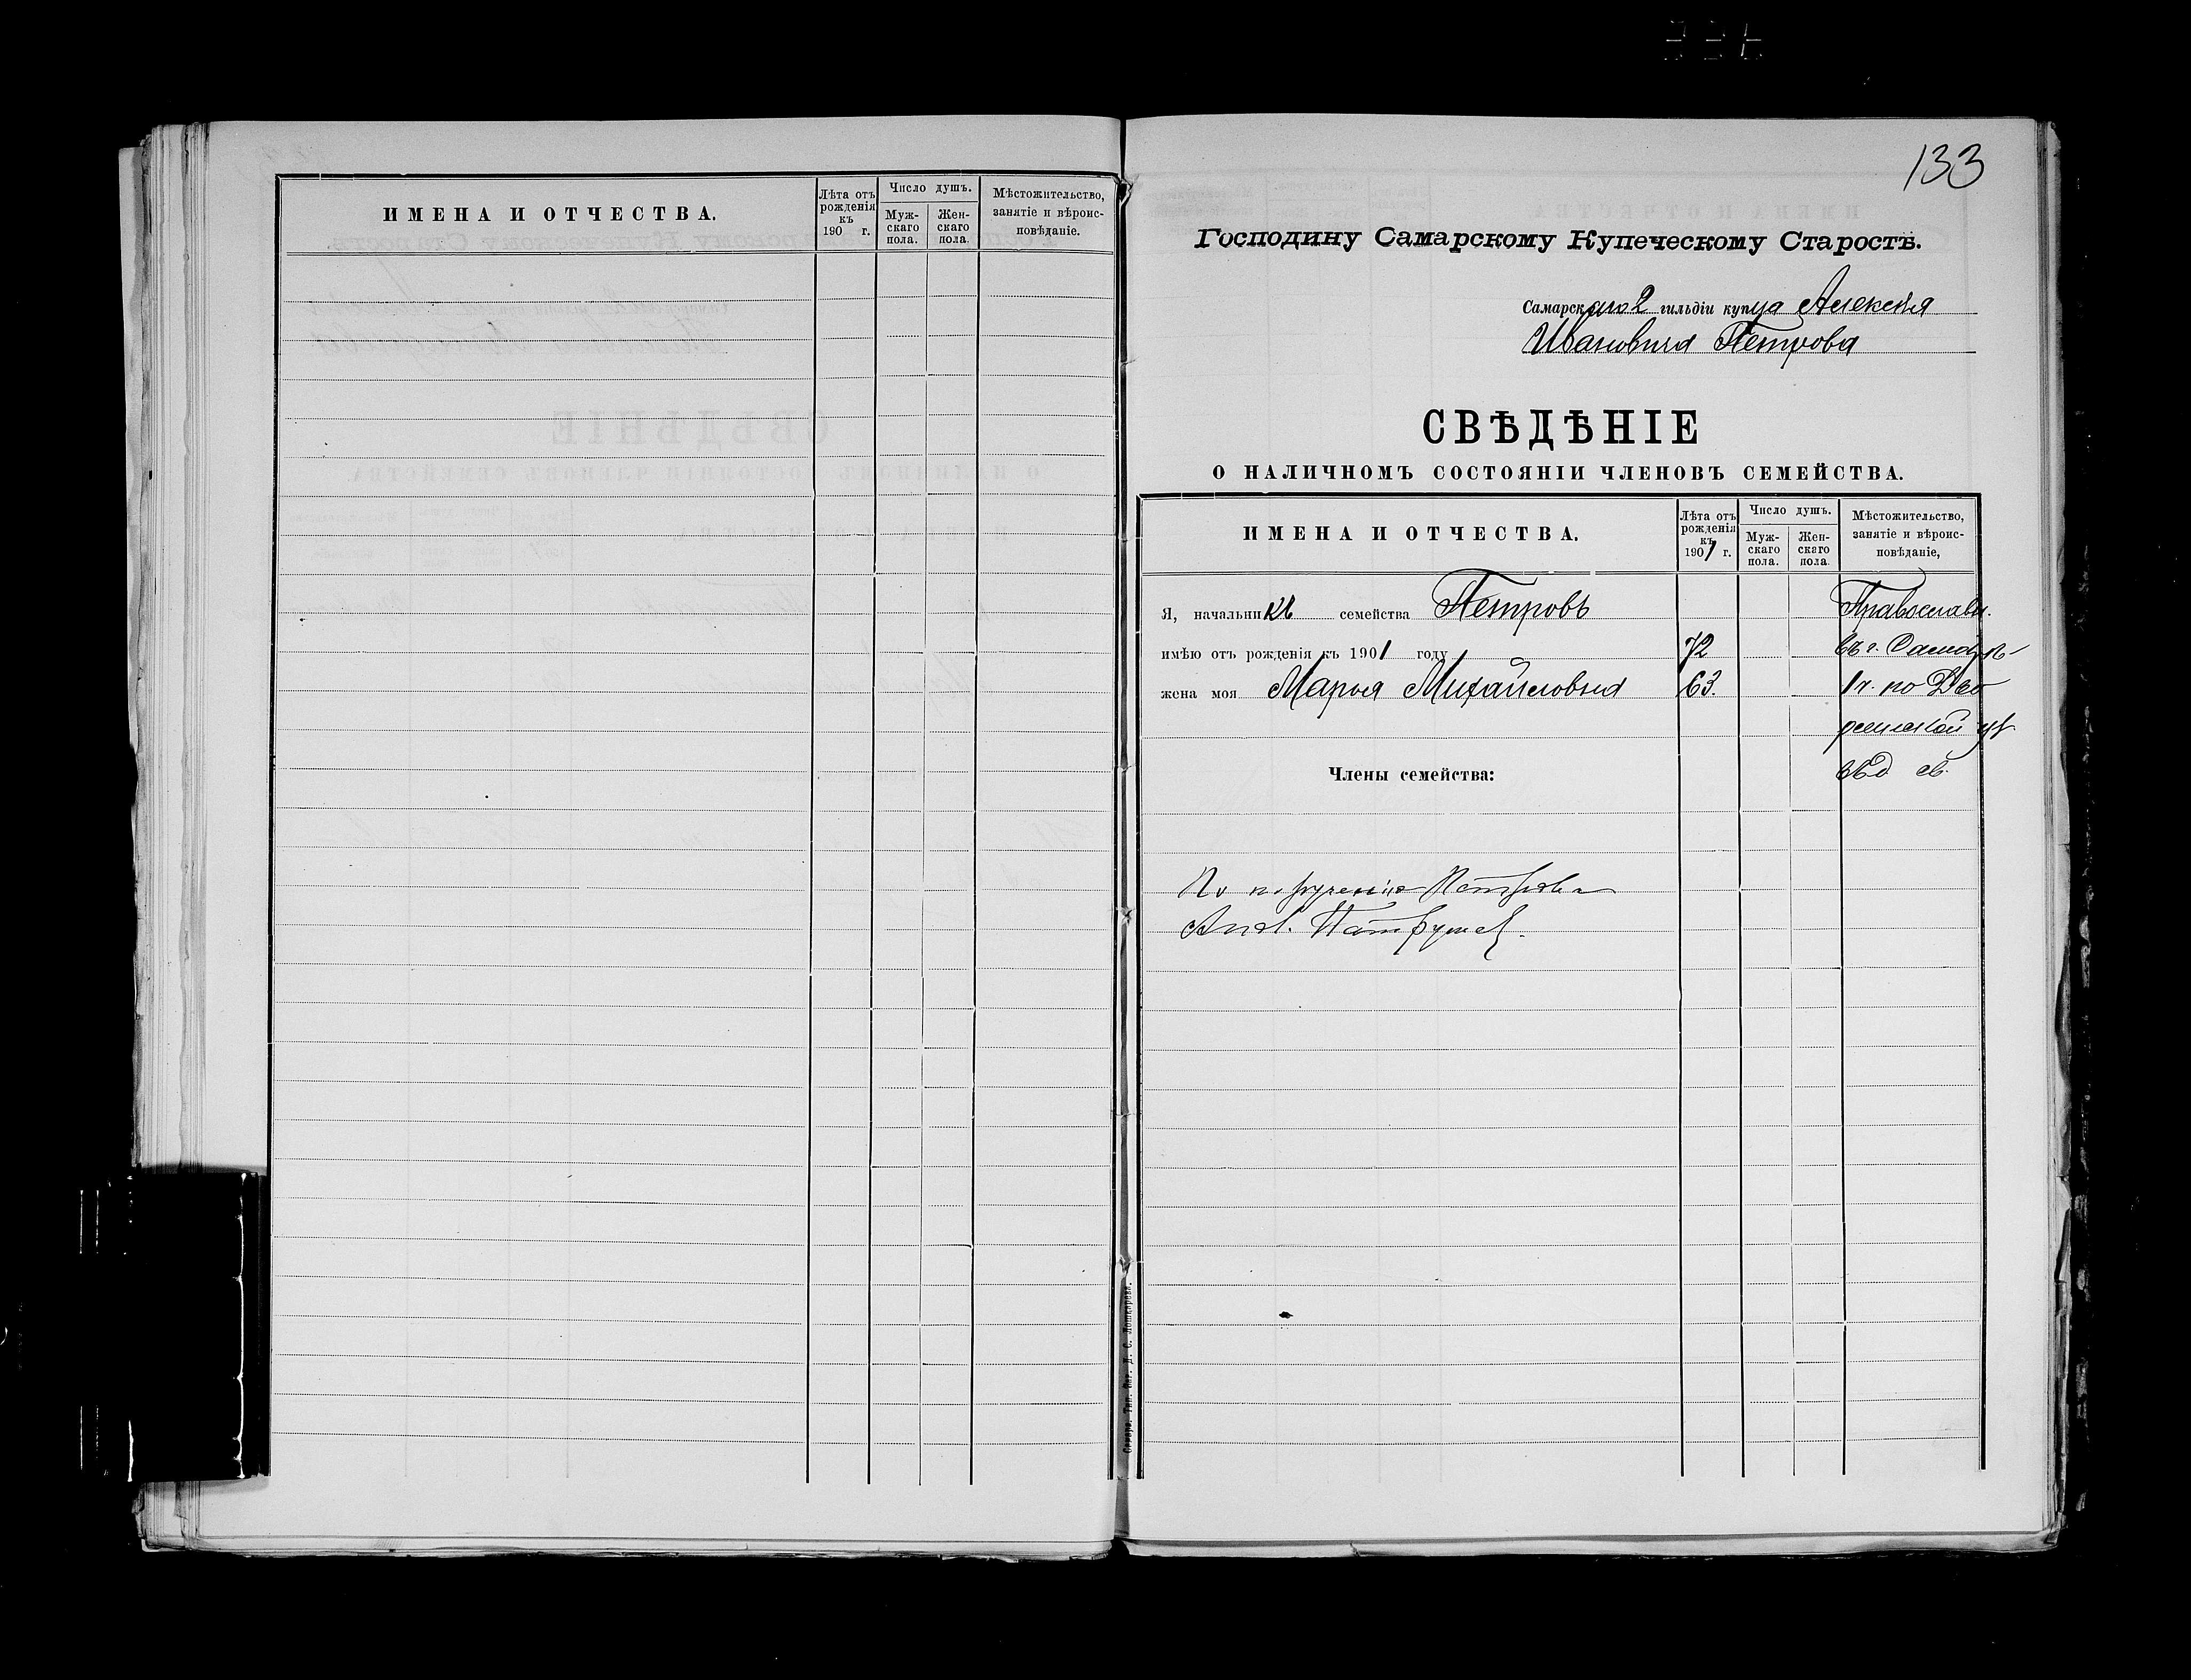 ИМЕНА И ОТЧЕСТВА.
Лѣта отъ рожденія къ 190 г.
Число душъ.
Мужскаго пола.
Женскаго пола.
Мѣстожительство, занятіе и вѣроисповѣданіе.
133
Господину Самарскому Купеческому Старостѣ.
Самарскаго 2 гильдіи купца Алексѣя
Ивановича Петрова
СВѢДѢНІЕ
О НАЛИЧНОМЪ СОСТОЯНІИ ЧЛЕНОВЪ СЕМЕЙСТВА.
ИМЕНА И ОТЧЕСТВА.
Лѣта отъ рожденія къ 1901 г.
Число душъ.
Мужскаго пола.
Женскаго пола.
Мѣстожительство, занятіе и вѣроисповѣданіе,
Я, начальникъ семейства Петровъ Православн.
имѣю отъ рожденія къ 1901 году 72 въ г. Самарѣ
жена моя Марья Михайловна 63. 1 ч. по Дво
рянской ул
Члены семейства: въ д св.
По порученію Петрова
Самара, Тип. Наг. Д. С. Пошкарева.